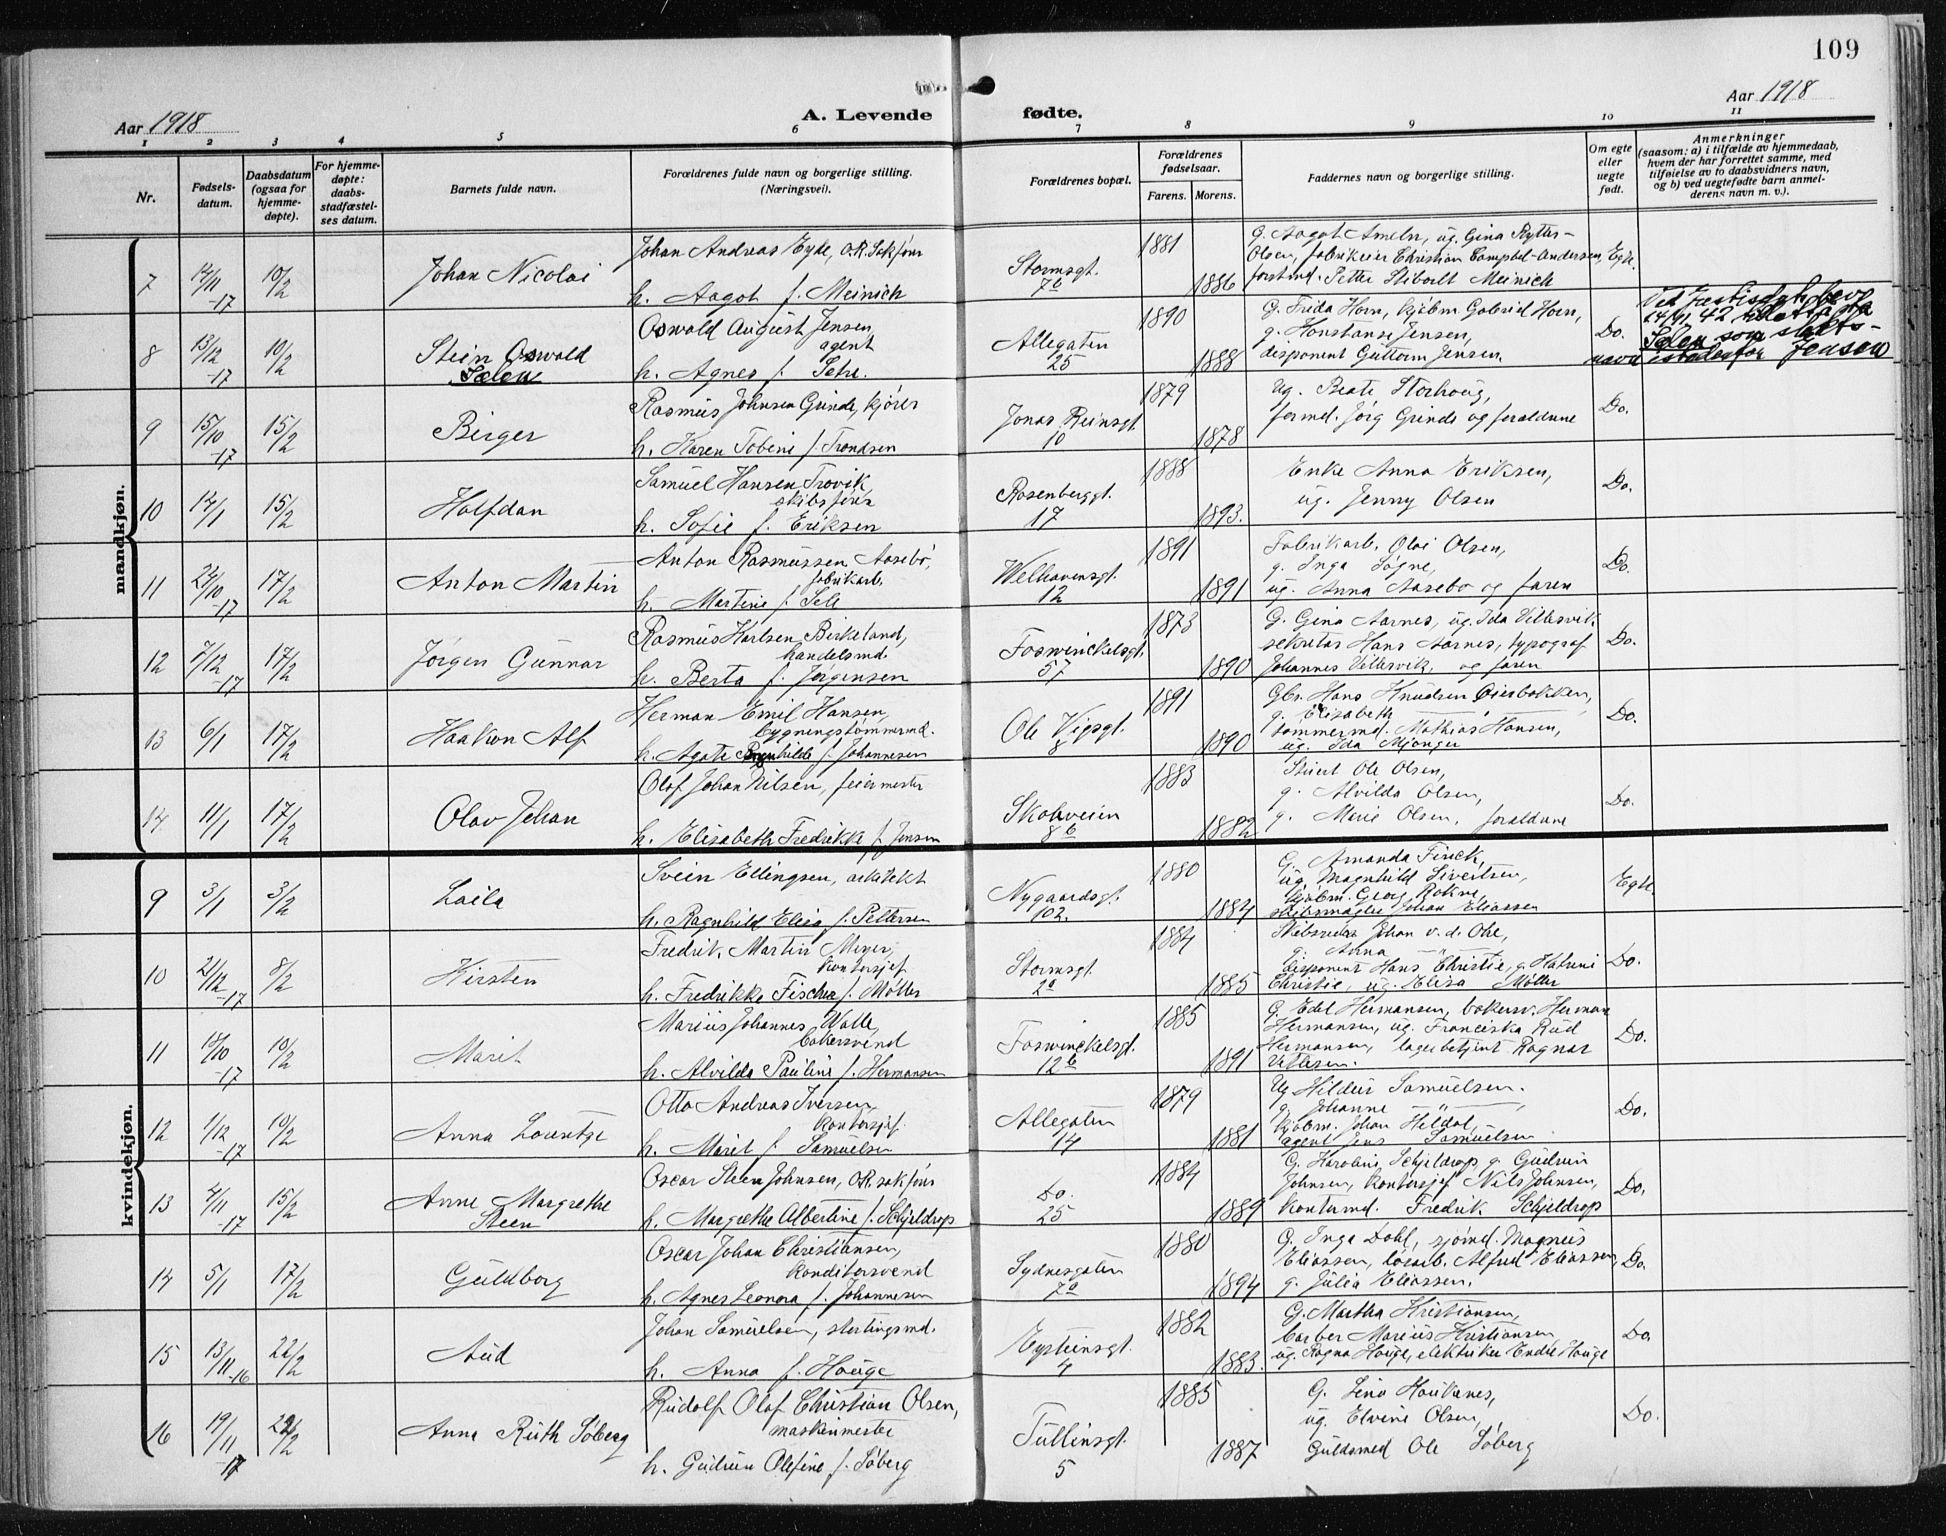 109
Aar 1918
A. Levende
fødte.
Aar 1918
1 2 3 4 5 6 7 8 9 10 11
Nr.
Fødsels-
datum.
Daabsdatum
(ogsaa for
hjemme-
døpte).
For hjemme-
døpte:
daabs-
stadfæstel-
ses datum.
Barnets fulde navn.
Forældrenes fulde navn og borgerlige stilling.
(Næringsvei).
Forældrenes bopæl.
Forældrenes
fødselsaar.
Farens. Morens.
Faddernes navn og borgerlige stilling.
Om egte
eller
uegte
født.
Anmerkninger
(saasom: a) i tilfælde av hjemmedaab,
hvem der har forrettet samme, med
tilføielse av to daabsvidners navn,
og b) ved uegtefødte barn anmel-
derens navn m. v.).
mandkjøn.
7 14/11 -17 10/2 Johan Nicolai
Johan Andreas Eyde, O.R. Sakfører
h. Aagot f. Meinich
Stormsgt. 7b
1881 1886
G. Aagot Ameln, ug. Gina Rytter-
Olsen, fabrikeier Christian Campbel-Andersen,
forstmd. Petter Stibolt Meinich
Egte.
8 13/12 -17 10/2 Stein Oswald
Sælen
Oswald August Jensen,
agent
h. Agnes f. Sehr.
Allegaten 25
1890 1888
G. Frida Horn, kjøbm. Gabriel Horn,
g. Konstanse Jensen,
disponent Guttorm Jensen
Do.
14/9 42
Sælen som slekts-
navn istedenfor Jensen
9 15/10 -17 15/2 Birger
Rasmus Johnsen Grinde, kjører
h. Karen Tobine f. Trondsen
Jonas Reinsgt. 10
1879 1878
ug. Beate Storhoug,
formd. Jørg Grinde og forældrene
Do.
10 14/1 15/2 Halfdan
Samuel Hansen Trovik,
skibsfører
h. Sofie f. Eriksen
Rosenberggt. 17
1888 1893.
Enke Anna Eriksen,
ug. Jenny Olsen
Do.
11 24/10 -17 17/2 Anton Martin
Anton Rasmussen Aasebø,
fabrikarb.
h. Martine f. Sele
Welhavensgt. 12
1891 1891
Fabrikarb. Olai Olsen,
g. Inga Søgne,
ug. Anna Aasebø og faren
Do.
12 7/12 -17 17/2 Jørgen Gunnar
Rasmus Karlsen Birkeland,
handelsmd.
h. Berta f. Jørgensen
Foswinckelsgt. 57
1873 1890
G. Gina Aarnes, ug. Ida Villesvik,
sekretær Hans Aarnes, typograf
Johannes Villesvik, og faren
Do.
13 6/1 17/2 Haakon Alf
Herman Emil Hansen,
bygningstømmermd.
h. Agate Ragnhilde f. Johannesen
Ole Vigsgt. 8
1891 1890
Gbr. Hans Knudsen
g. Elisabeth
tømmermd. Mathias Hansen,
ug. Ida Mjønger
Do.
14 11/1 17/2 Olav Johan
Olaf Johan Nilsen, feiermester
h. Elisabeth Fredrikke f. Jensen
Skolveien 8b
1883 1882
Stuert Ole Olsen,
g. Alvilda Olsen,
g. Marie Olsen, forældrene
Do.
kvindekjøn.
9 3/1 3/2 Laila
Svein Ellingsen, arkitekt
h. Ragnhild Elisa f. Pettersen
Nygaardsgt. 102.
1880 1884
G. Amanda Finck,
ug. Magnhild Sivertsen,
kjøbm. Georg Rokne,
skibsmægler Johan Eliassen
Egte.
10 21/12 -17 8/2 Kirsten
Fredrik Martin Meyer,
kontorsjef
h. Fredrikke Fischer f. Møller
Stormsgt. 2a
1884 1885
Skibsreder Johan v. d. Ohe,
g. Anna —"—
disponent Hans Christie, g. Katrine
Christie, ug. Elisa Møller
Do.
11 15/10 -17 10/2 Marit
Marius Johannes Walle,
bakersvend
h. Alvilda Pauline f. Hermansen
Foswinckelsgt. 12b
1885 1891
G. Edel Hermansen, bakersv. Herman
Hermansen, ug. Franciska Rud
Hermansen, lagerbetjent Ragnar
Do.
12 1/12 -17 10/2 Anna Lorentze
Otto Andreas Iversen,
kontorsjef.
h. Marit f. Samuelsen
Allegaten 14
1879 1881
Ug Hildur Samuelsen.
g. Johanne —"—,
kjøbm. Johan Heldal,
agent Jens Samuelsen
Do.
13 4/11 -17 15/2 Anne Margrethe
Steen
Oscar Steen Johnsen, O.R. sakfører
h. Margrethe Albertine f. Schjeldrop
Do. 25
1884 1889
G. Karoline Schjeldrop, g. Gudrun
Johnsen, kontorsjef Nils Johnsen,
kontormd. Fredrik Schjeldrop
Do.
14 5/1 17/2 Guldborg
Oscar Johan Christiansen,
konditorsvend
h. Agnes Leonora f. Johannesen
Sydnesgaten 7a
1880 1894
G. Inga Dahl, sjømd. Magnus
Eliassen, løsarb. Alfred Eliassen,
g. Julia Eliassen.
Do.
15 13/11 -16 22/2 Aud
Johan Samuelsen, stortingsmd.
h. Anna f. Hauge
Eysteinsgt. 4
1882 1883.
G. Martha Kristiansen,
barber Marius Kristiansen,
ug. Ragna Hauge, elektriker Endre Hauge
Do.
16 19/11 -17 22/2 Anna Ruth Søberg
Rudolf Olaf Christian Olsen,
maskinmester
h. Gudrun Olefine f. Søberg
Tullinsgt. 5
1885 1887
G. Lina Haukenes,
ug. Elvine Olsen,
Guldsmed Ole Søberg
Do.